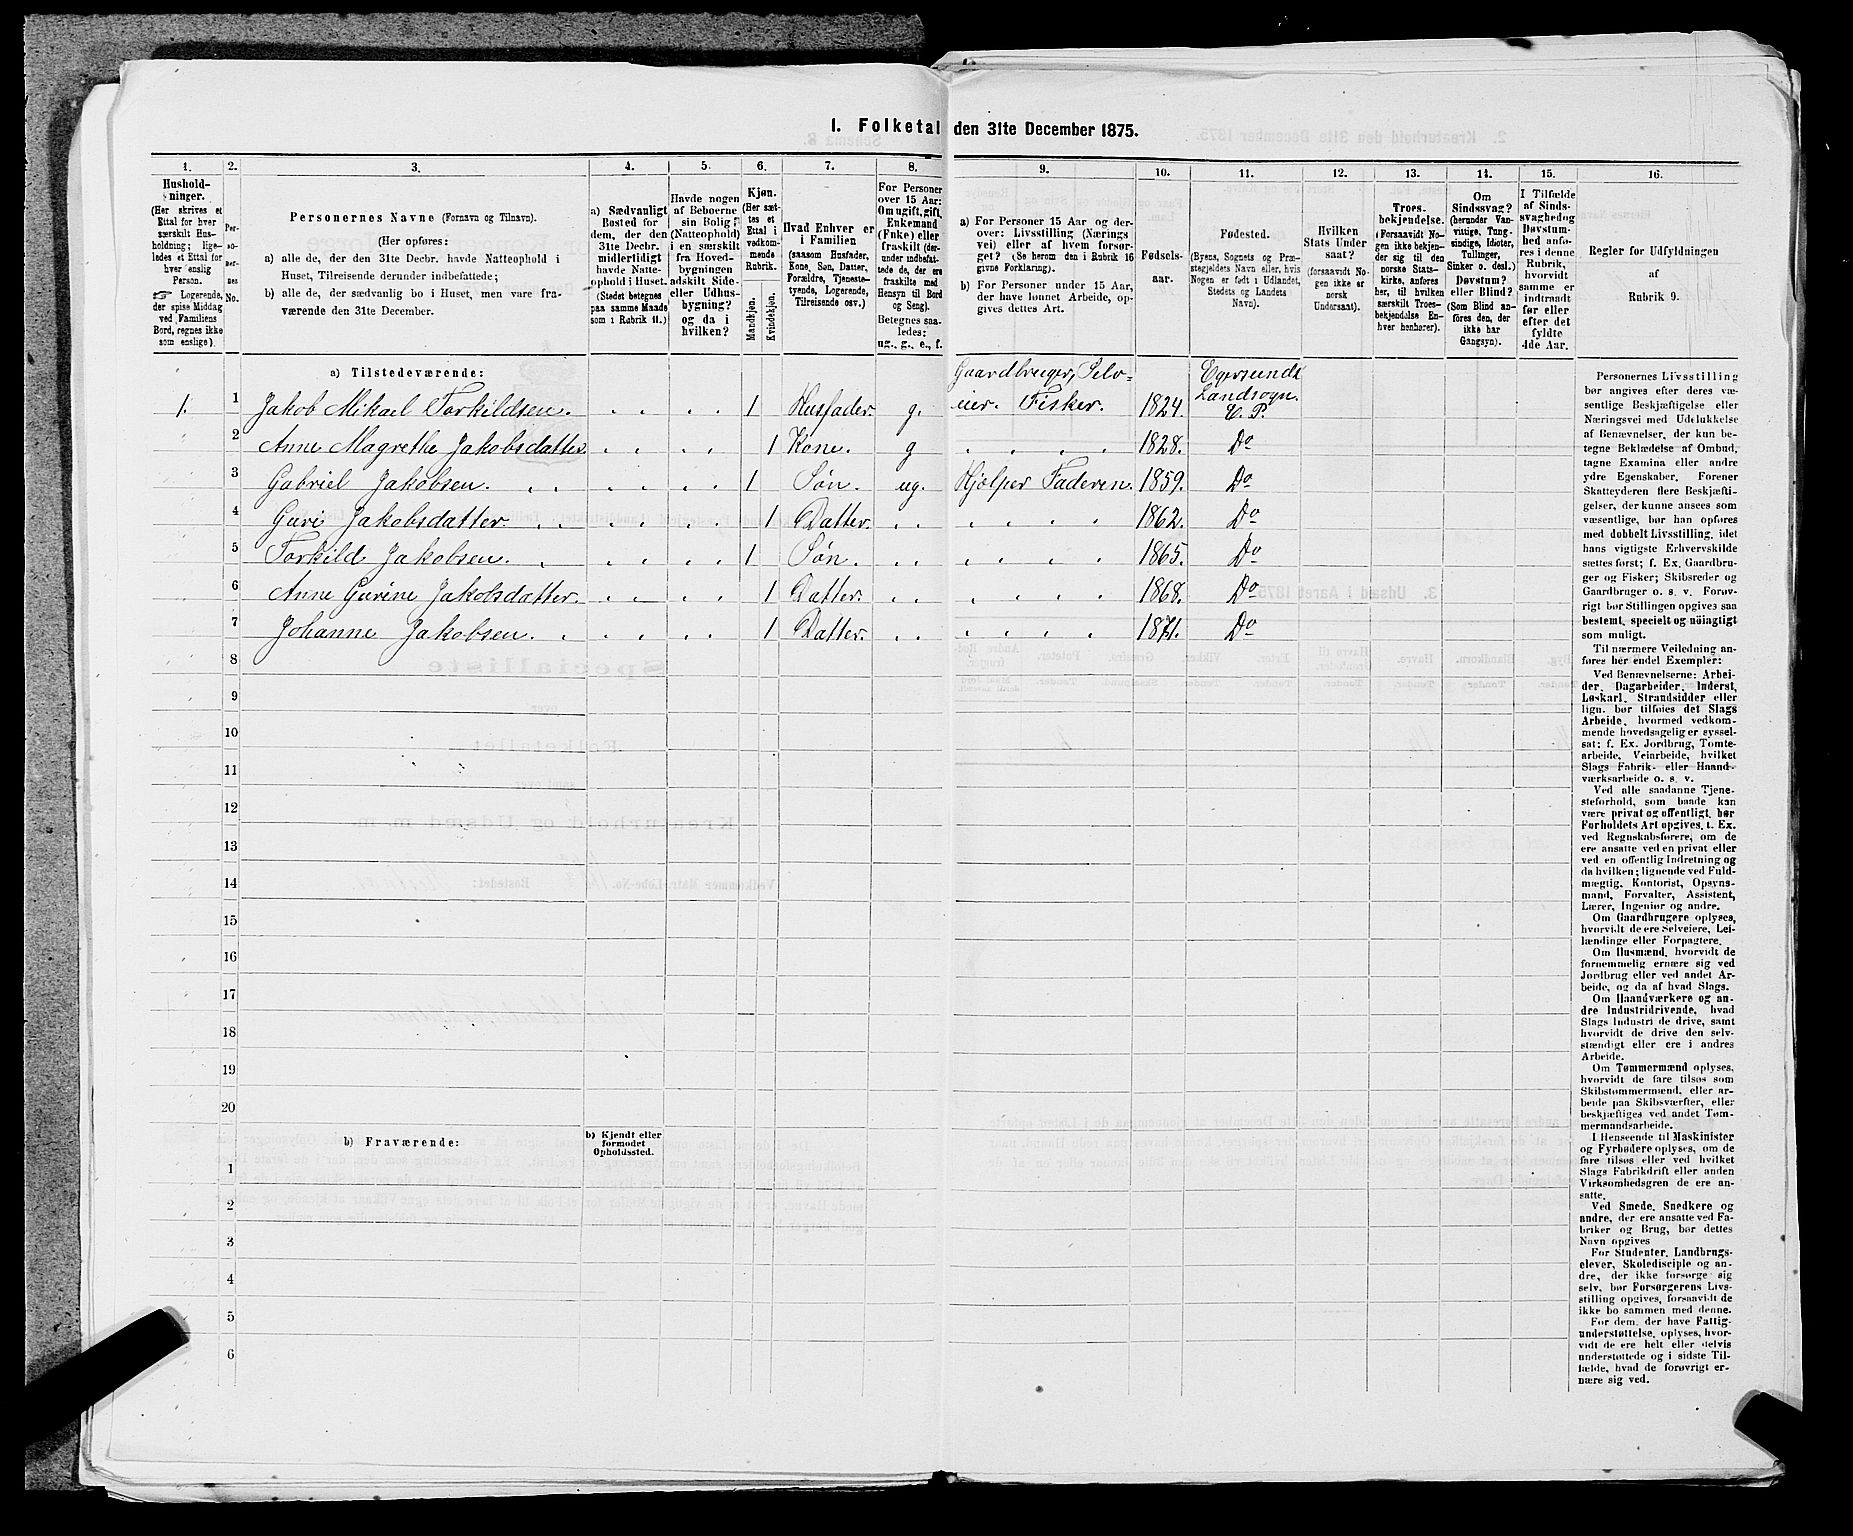 I. Folketal den 31te December 1875.
1. 2. 3. 4. 5. 6. 7. 8. 9. 10. 11. 12. 13. 14. 15. 16.
Hushold-
ninger.
(Her skrives et
Ettal for hver
særskilt Hus-
holdning; lige-
ledes et Ettal for
hver enslig
Person.
☞ Logerende,
der spise Middag
ved Familiens
Bord, regnes ikke
som enslige).
Per-
so-
ner-
nes
No.
Personernes Navne (Fornavn og Tilnavn).
(Her opføres:
a) alle de, der den 31te Decbr. havde Natteophold i
Huset, Tilreisende derunder indbefattede;
b) alle de, der sædvanlig bo i Huset, men vare fra-
værende den 31te December.
a) Sædvanligt
Bosted for
dem, der den
31te Decbr.
midlertidigt
havde Natte-
ophold i Huset.
(Stedet betegnes
paa samme Maade
som i Rubrik 11.)
Havde nogen
af Beboerne
sin Bolig
(Natteophold)
i en særskilt
fra Hoved-
bygningen
adskilt Side-
eller Udhus-
bygning?
og da i
hvilken?
Kjøn.
(Her sæt-
tes et
Ettal i
vedkom-
mende
Rubrik.
Mandkjøn.
Kvindekjøn.
Hvad Enhver er
i Familien
(saasom Husfader,
Kone, Søn, Datter,
Forældre, Tjeneste-
tyende, Logerende,
Tilreisende osv.)
For Personer
over 15 Aar:
Om ugift, gift,
Enkemand
(Enke) eller
fraskilt (der-
under indbefat-
tede de, der ere
fraskilte med
Hensyn til Bord
og Seng).
Betegnes saa-
ledes:
ug., g., e., f.
a) For Personer 15 Aar og der-
over: Livsstilling (Nærings-
vei) eller af hvem forsør-
get? (Se herom den i Rubrik 16
givne Forklaring).
b) For Personer under 15 Aar,
der have lønnet Arbeide, op-
gives dettes Art.
Fødsels-
aar.
Fødested.
(Byens, Sognets og Præ-
stegjeldets Navn eller, hvis
Nogen er født i Udlandet,
Stedets og Landets
Navn).
Hvilken
Stats Under-
saat?
(forsaavidt No-
gen ikke er
norsk
Undersaat).
Troes-
bekjendelse.
(Forsaavidt No-
gen ikke bekjen-
der sig til den
norske Stats-
kirke, anføres
her, til hvilken
særskilt Troes-
bekjendelse En-
hver henhører).
Om
Sindssvag?
(herunder Van-
vittige, Tung-
sindige, Idioter,
Tullinger,
Sinker o. desl.)
Døvstum?
eller Blind?
(Som Blind an-
føres den, der
ikke har
Gangsyn).
I Tilfælde
af Sinds-
svaghed og
Døvstum-
hed anfø-
res i denne
Rubrik,
hvorvidt
samme er
indtraadt
før eller
efter det
fyldte
4de Aar.
Regler for Udfyldningen
af
Rubrik 9.
a) Tilstedeværende:
1. 1 Jakob Mikael Torkildsen. 1 Husfader. g. Gaardbruger, Selv-
eier. Fisker. 1824. Egersunds
Landsogn.
E. P.
2 Anne Magrethe Jakobsdatter 1 Kone. g 1828. Do
3 Gabriel Jakobsen. 1 Søn. ug. Hjælper Faderen. 1859. Do
4 Guri Jakobsdatter 1 Datter. 1862. Do
5 Torkild Jakobsen. 1 Søn. 1865. Do
6 Anne Gurine Jakobsdatter. 1 Datter. 1868. Do
7 Johanne Jakobsen. 1 Datter. 1871. Do
8
9
10
11
12
13
14
15
16
17
18
19
20
b) Fraværende:
b) Kjendt eller
formodet
Opholdssted.
1
2
3
4
5
6
Personernes Livsstilling
bør angives efter deres væ-
sentlige Beskjæftigelse eller
Næringsvei med Udelukkelse
af Benævnelser, der kun be-
tegne Beklædelse af Ombud,
tagne Examina eller andre
ydre Egenskaber. Forener
Skatteyderen flere Beskjæfti-
gelser, der kunne ansees som
væsentlige, bør han opføres
med dobbelt Livsstilling, idet
hans vigtigste Erhvervskilde
sættes først; f. Ex. Gaardbru-
ger og Fisker; Skibsreder og
Gaardbruger o. s. v. Forøv-
rigt bør Stillingen opgives saa
bestemt, specielt og nöiagtigt
som muligt.
Til nærmere Veiledning an-
føres her endel Exempler:
Ved Benævnelserne: Arbei-
der, Dagarbeider, Inderst,
Løskarl, Strandsidder eller
lign. bør tilføies det Slags
Arbeide, hvormed vedkom-
mende hovedsagelig er syssel-
sat; f. Ex. Jordbrug, Tomte-
arbeide, Veiarbeide, hvilket
Slags Fabrik- eller Haand-
værksarbeide o. s. v.
Ved alle saadanne Tjene-
steforhold, som baade kan
være privat og offentligt, bør
Forholdets Art opgives, t. Ex.
ved Regnskabsførere, om de
ere ansatte ved en privat eller
ved en offentlig Indretning og
da hvilken; lignende ved Fuld-
mægtig, Kontorist, Opsyns-
mand, Forvalter, Assistent,
Lærer, Ingeniør og andre.
Om Gaardbrugere oplyses,
hvorvidt de ere Selveiere, Lei-
lændinge eller Forpagtere.
Om Husmænd, hvorvidt de
fornemmelig ernære sig ved
Jordbrug eller ved andet Ar-
beide, og da af hvad Slags.
Om Haandværkere og an-
dre Industridrivende, hvad
Slags Industri de drive, samt
hvorvidt de drive den selv-
stændigt eller ere i andres
Arbeide.
Om Tømmermænd oplyses,
hvorvidt de fare tilsøs som
Skibstømmermænd, eller ar-
beide paa Skibsværfter, eller
beskjæftiges ved andet Tøm-
mermandsarbeide.
I Henseende til Maskinister
og Fyrbødere oplyses, om de
fare tilsøs eller ved hvilket
Slags Fabrikdrift eller anden
Virksomhedsgren de ere an-
satte.
Ved Smede, Snedkere og
andre, der ere ansatte ved Fa-
briker og Brug, bør dettes
Navn opgives
For Studenter, Landbrugs-
elever, Skoledisciple og an-
dre, der ikke forsørge sig
selv, bør Forsørgerens Livs-
stilling opgives, forsaavidt de
ikke bo sammen med denne.
For dem, der have Fattig-
understøttelse, oplyses, hvor-
vidt de ere helt eller delvis
understøttede og i sidste Til-
fælde, hvad de forøvrigt er-
nære sig ved.